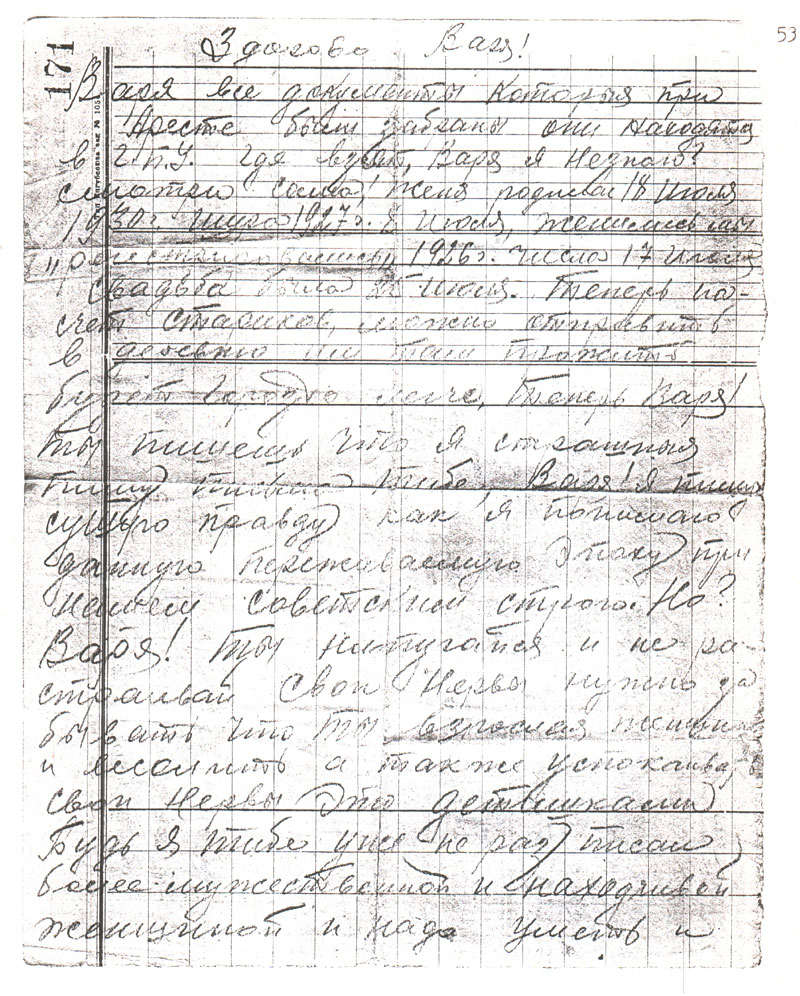 53
171
Здорово Варя!
Варя все документы которыя при
Аресте были забраны они находятся
в Г.П.У. где взять, Варя я Незнаю?
смотри сама! Женя родился 18 Июля
1930г. Шура 1927г. 8 Июля, женились мы
1926г. числа 17 Июля
Свадьба была 25 Июля. Теперь на-
счет Стариков, можно отправить
в деревню им там прожить
будет гораздо легче, Теперь Варя!
Ты пишешь что я страшныя
пишу письма Тибе. Варя! Я пишу
сущую правду как я понимаю
данную переживаемую Эпоху при
нашем советским строю. Но?
Варя! Ты нипугайся и не ра-
страивай Свои Нервы нужно за
бывать что ты взрослая женщи
и веселить а также успокаивать
свои Нервы Это детишками
Будь я тибе уже (не раз) писал
более мужественной и находчивой
женщиной и надо уметь и